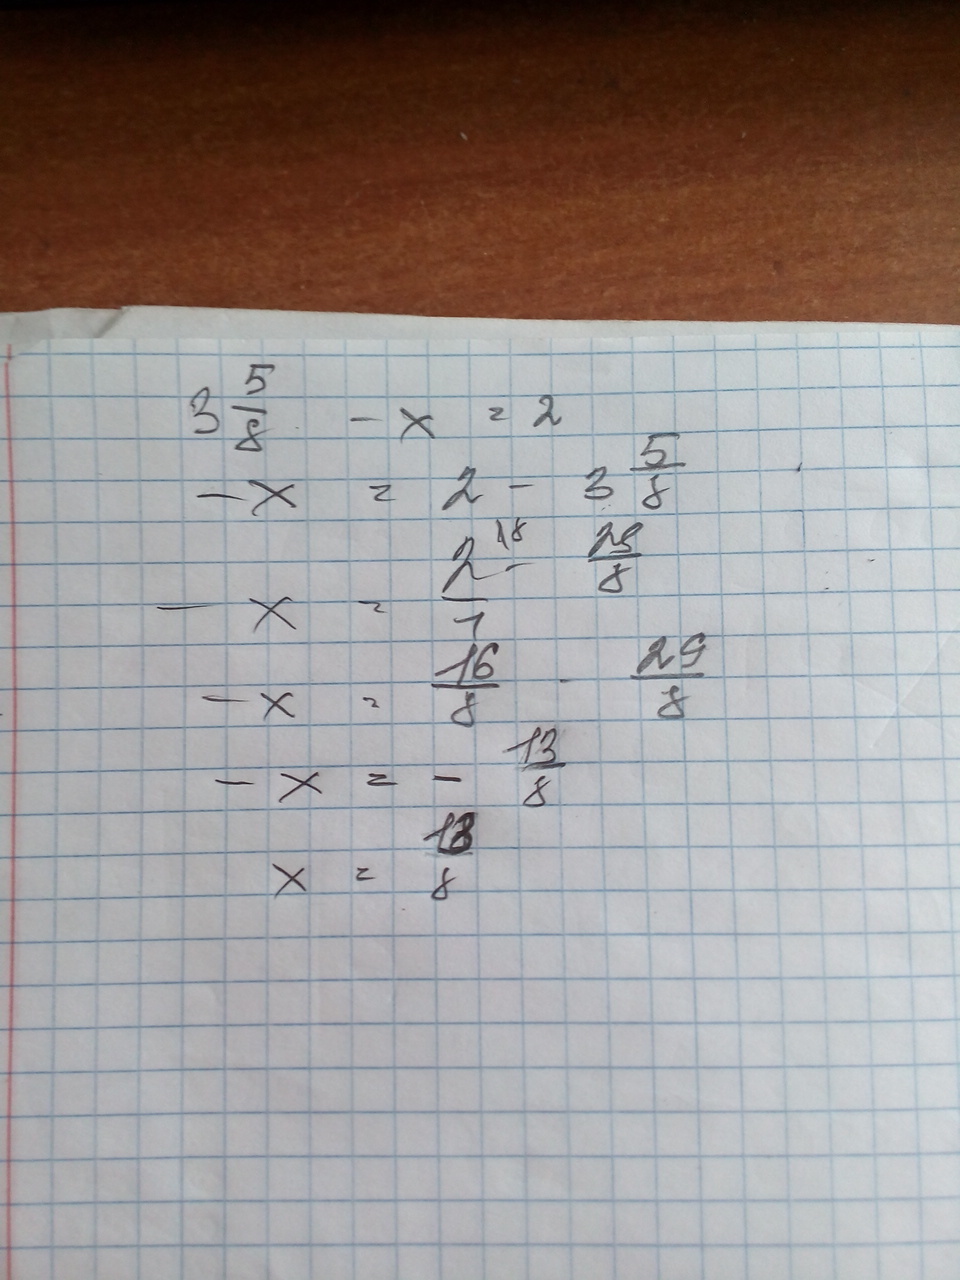 3 5/8 - x = 2
- x = 2 - 3 5/8
- x = 2/1 \8 - 29/8
- x = 16/8 - 29/8
- x = - 13/8
x = 13/8